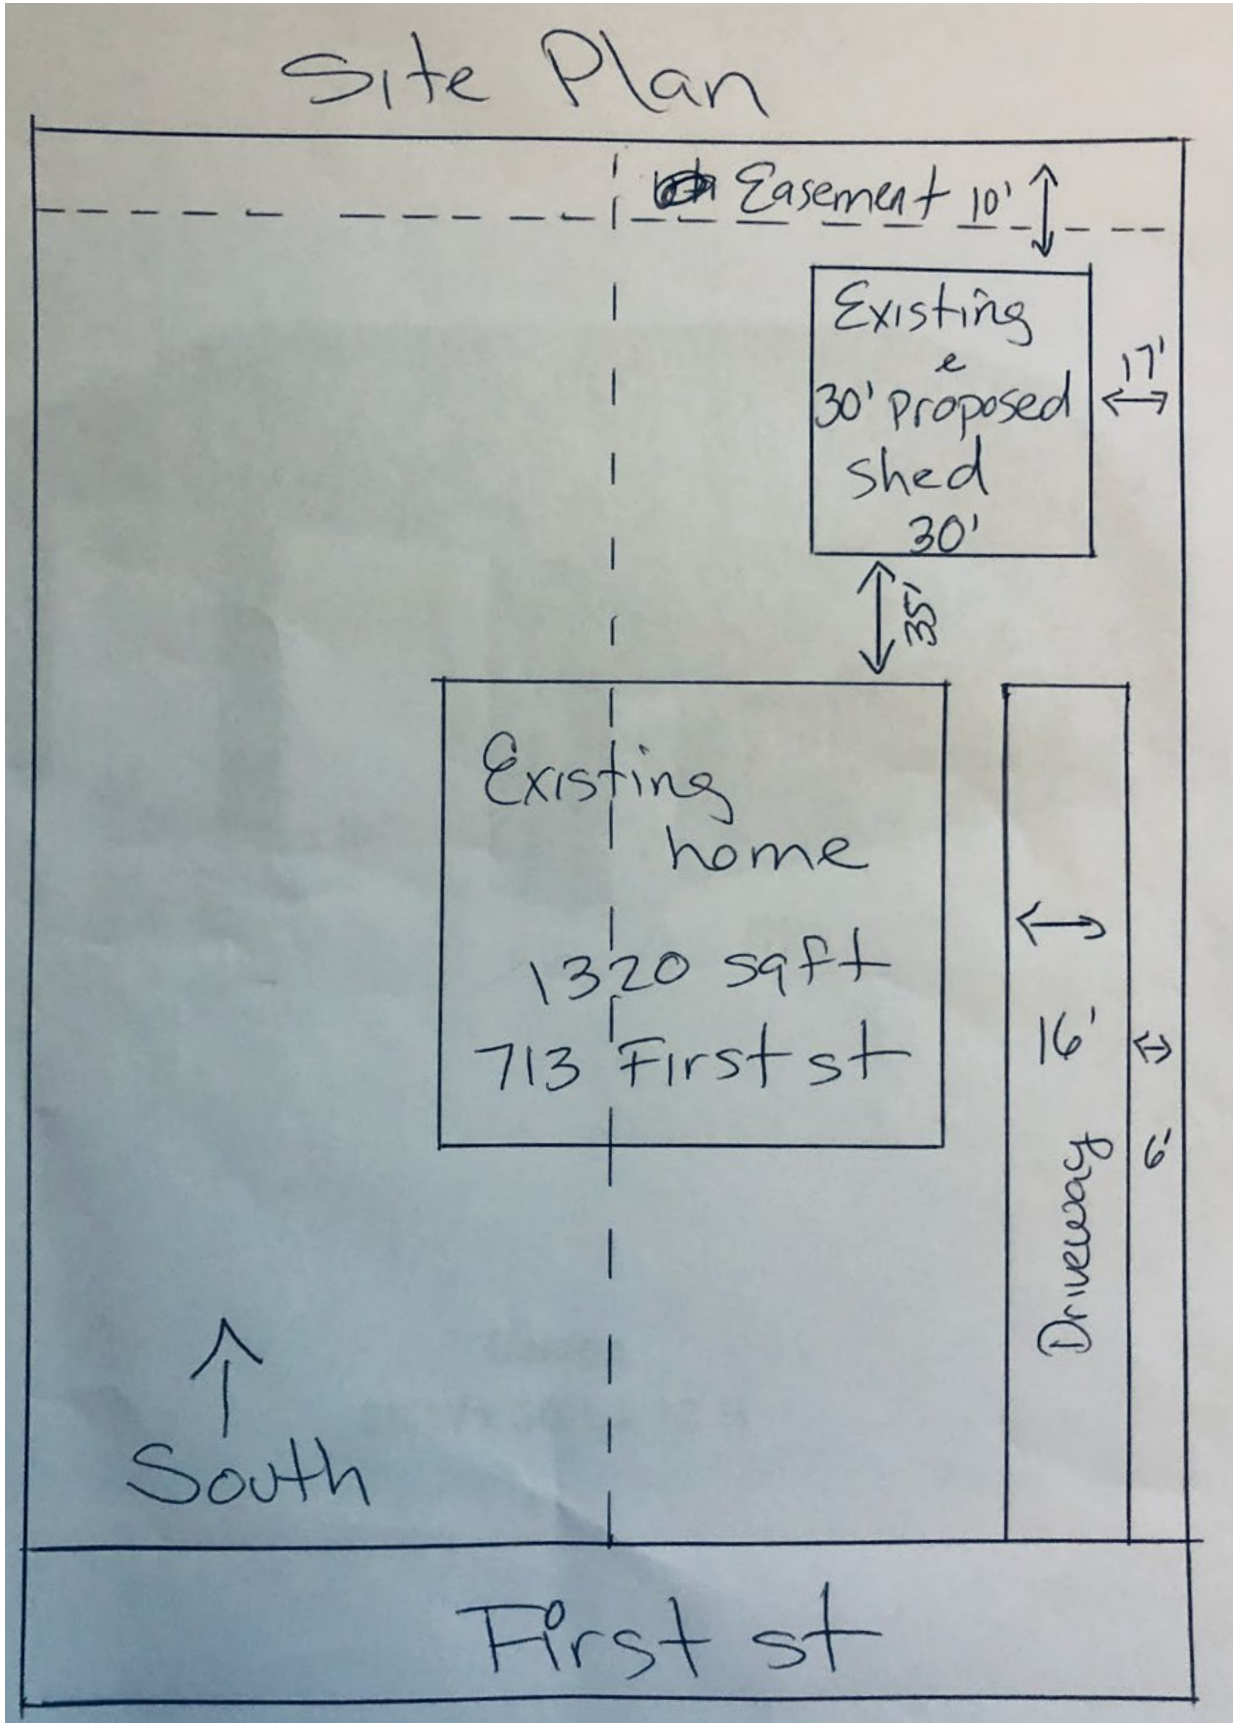 Site Plan
Easement 10'
Existing
e
30' Proposed
shed
30'
17'
35'
Existing
home
1320 sqft
713 First st
16'
Driveway
6'
South
First st